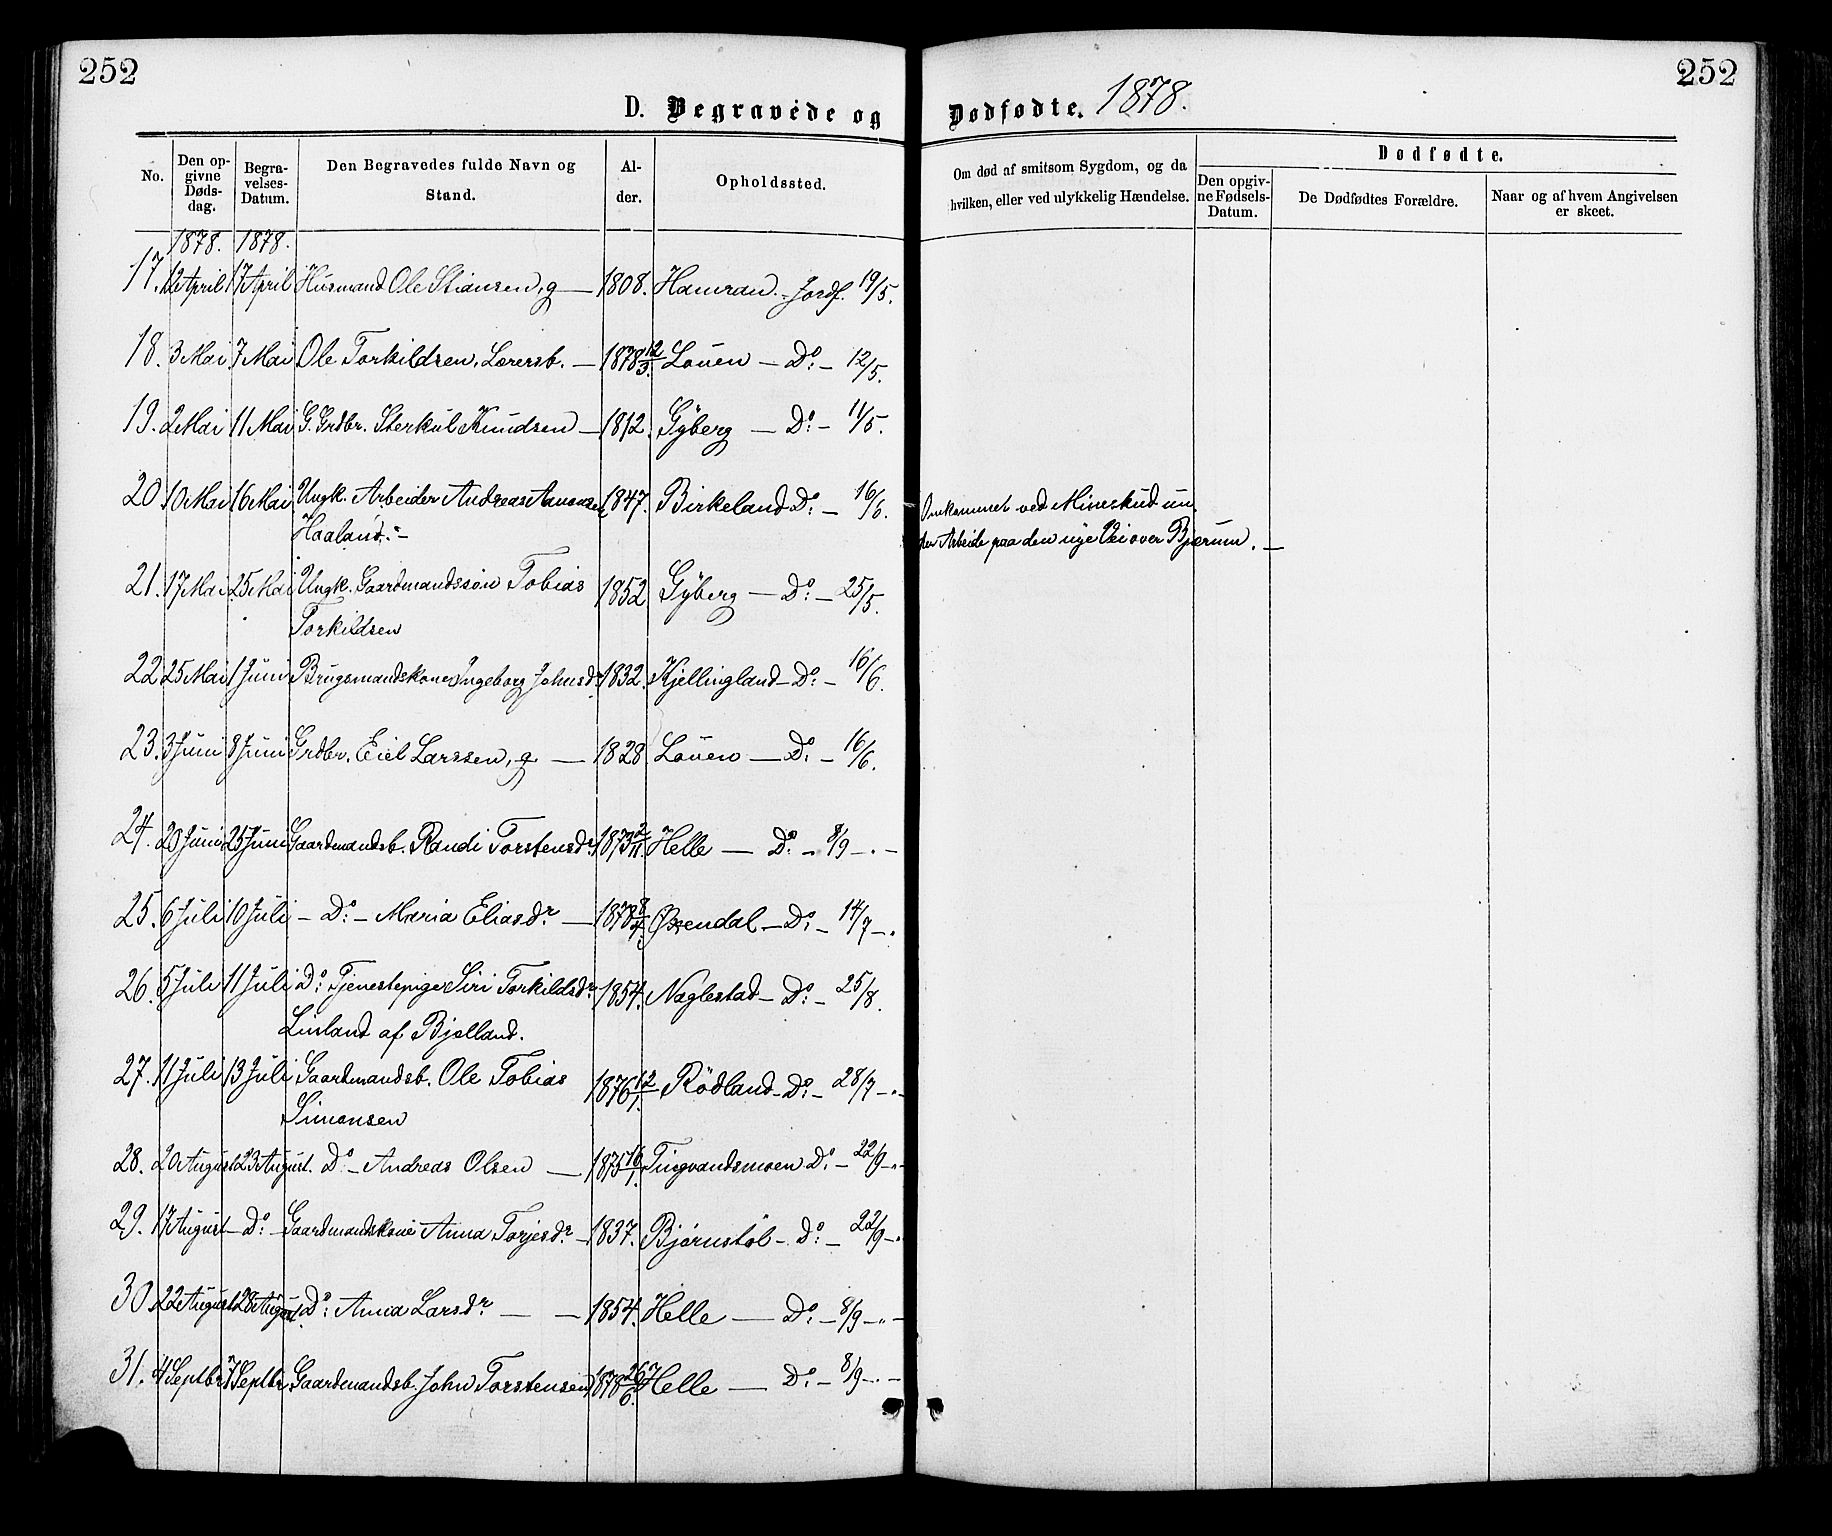 252
252
D. Begravede og Dødfødte. 1878.
No.
Den opgivne Dødsdag.
Begravelses-Datum.
Den Begravedes fulde Navn og Stand.
Alder.
Opholdssted.
Om død af smitsom Sygdom, og da hvilken, eller ved ulykkelig Hændelse.
Dødfødte.
Den opgivne Fødsels-Datum.
De Dødfødtes Forældre.
Naar og af hvem Angivelsen er skeet.
1878. 1878.
17. 12 April 17 April Husmand Ole Stiansen, g — 1808. Hamran. - Jordf. 19/5.
18. 3 Mai 7 Mai Ole Torkildsen, Lærersb. — 1878 12/3. Louen — Do: — 12/5.
19. 2 Mai 11 Mai G. Grdbr. Sterkul Knudsen — 1812. Gyberg — Do: — 11/5.
20 10 Mai 16 Mai Ungk. Arbeider Andreas Aanensen 1847. Birkeland Do: — 16/6. Omkommet ved Mineskud un
Haaland. - der Arbeide paa den nye Vei over Bjærum. —
21. 17 Mai 25 Mai Ungk. Gaardmandssøn Tobias 1852 Gyberg — Do: — 25/5.
Torkildsen
22 25 Mai 1 Juni Brugsmandskone Ingeborg Johnsdr. 1832. Kjellingland — Do: — 16/6.
23. 3 Juni 8 Juni Grdbr. Eiel Larssen, g. — 1828 Louen — Do: — 16/6.
24. 20 Juni 25 Juni Gaardmandsb. Randi Torstensdr. 1873 2/11. Helle — Do: — 8/9 — . —
25. 6 Juli 10 Juli — Do: — Maria Eliasdr. — 1878 8/4. Øxendal — Do: — 14/7 — .
26. 5 Juli 11 Juli Do: Tjenestepige Siri Torkildsdr. 1854. Naglestad — Do: — 25/8.
Linland af Bjelland.
27. 11 Juli 13 Juli Gaardmandsb. Ole Tobias 1876 12/1. Rödland — Do: — 28/7 — . —
Simonsen
28. 20 August 23 August. Do — Andreas Olsen — 1875 16/1. Tingvandsmoen Do: — 22/9 — . —
29. 17 August — Do: — Gaardmandskone Anna Torjesdr. — 1837. Bjørnstøl — Do: — 22/9 — .
30. 22 August 28 August Do: Anna Larsdr. — — 1854. Helle — Do: — 8/9 — . —
31. 4 Septbr 7 Septbr Gaardmandsb. John Torstensen 1878 26/6. Helle — Do: — 8/9 — . —